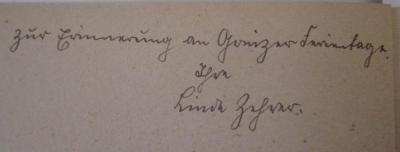 Zur Erinnerung an Gonizer Ferientage.
Ihre
Linde Zehrer.